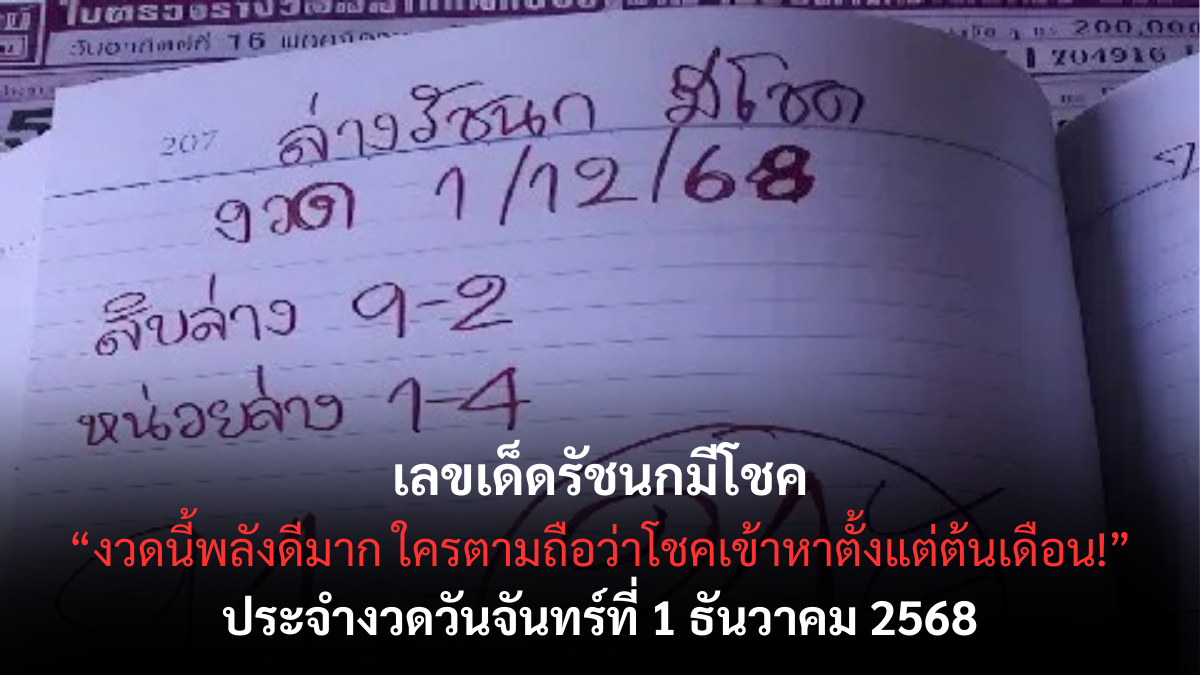 วันอาทิตย์ที่ 16
200,000
704916
207
ล่างรัชนก มีโชค
งวด 1/12/68
สิบล่าง 9-2
หน่วยล่าง 1-4
เลขเด็ดรัชนกมีโชค
“งวดนี้พลังดีมาก ใครตามถือว่าโชคเข้าหาตั้งแต่ต้นเดือน!”
ประจำงวดวันจันทร์ที่ 1 ธันวาคม 2568